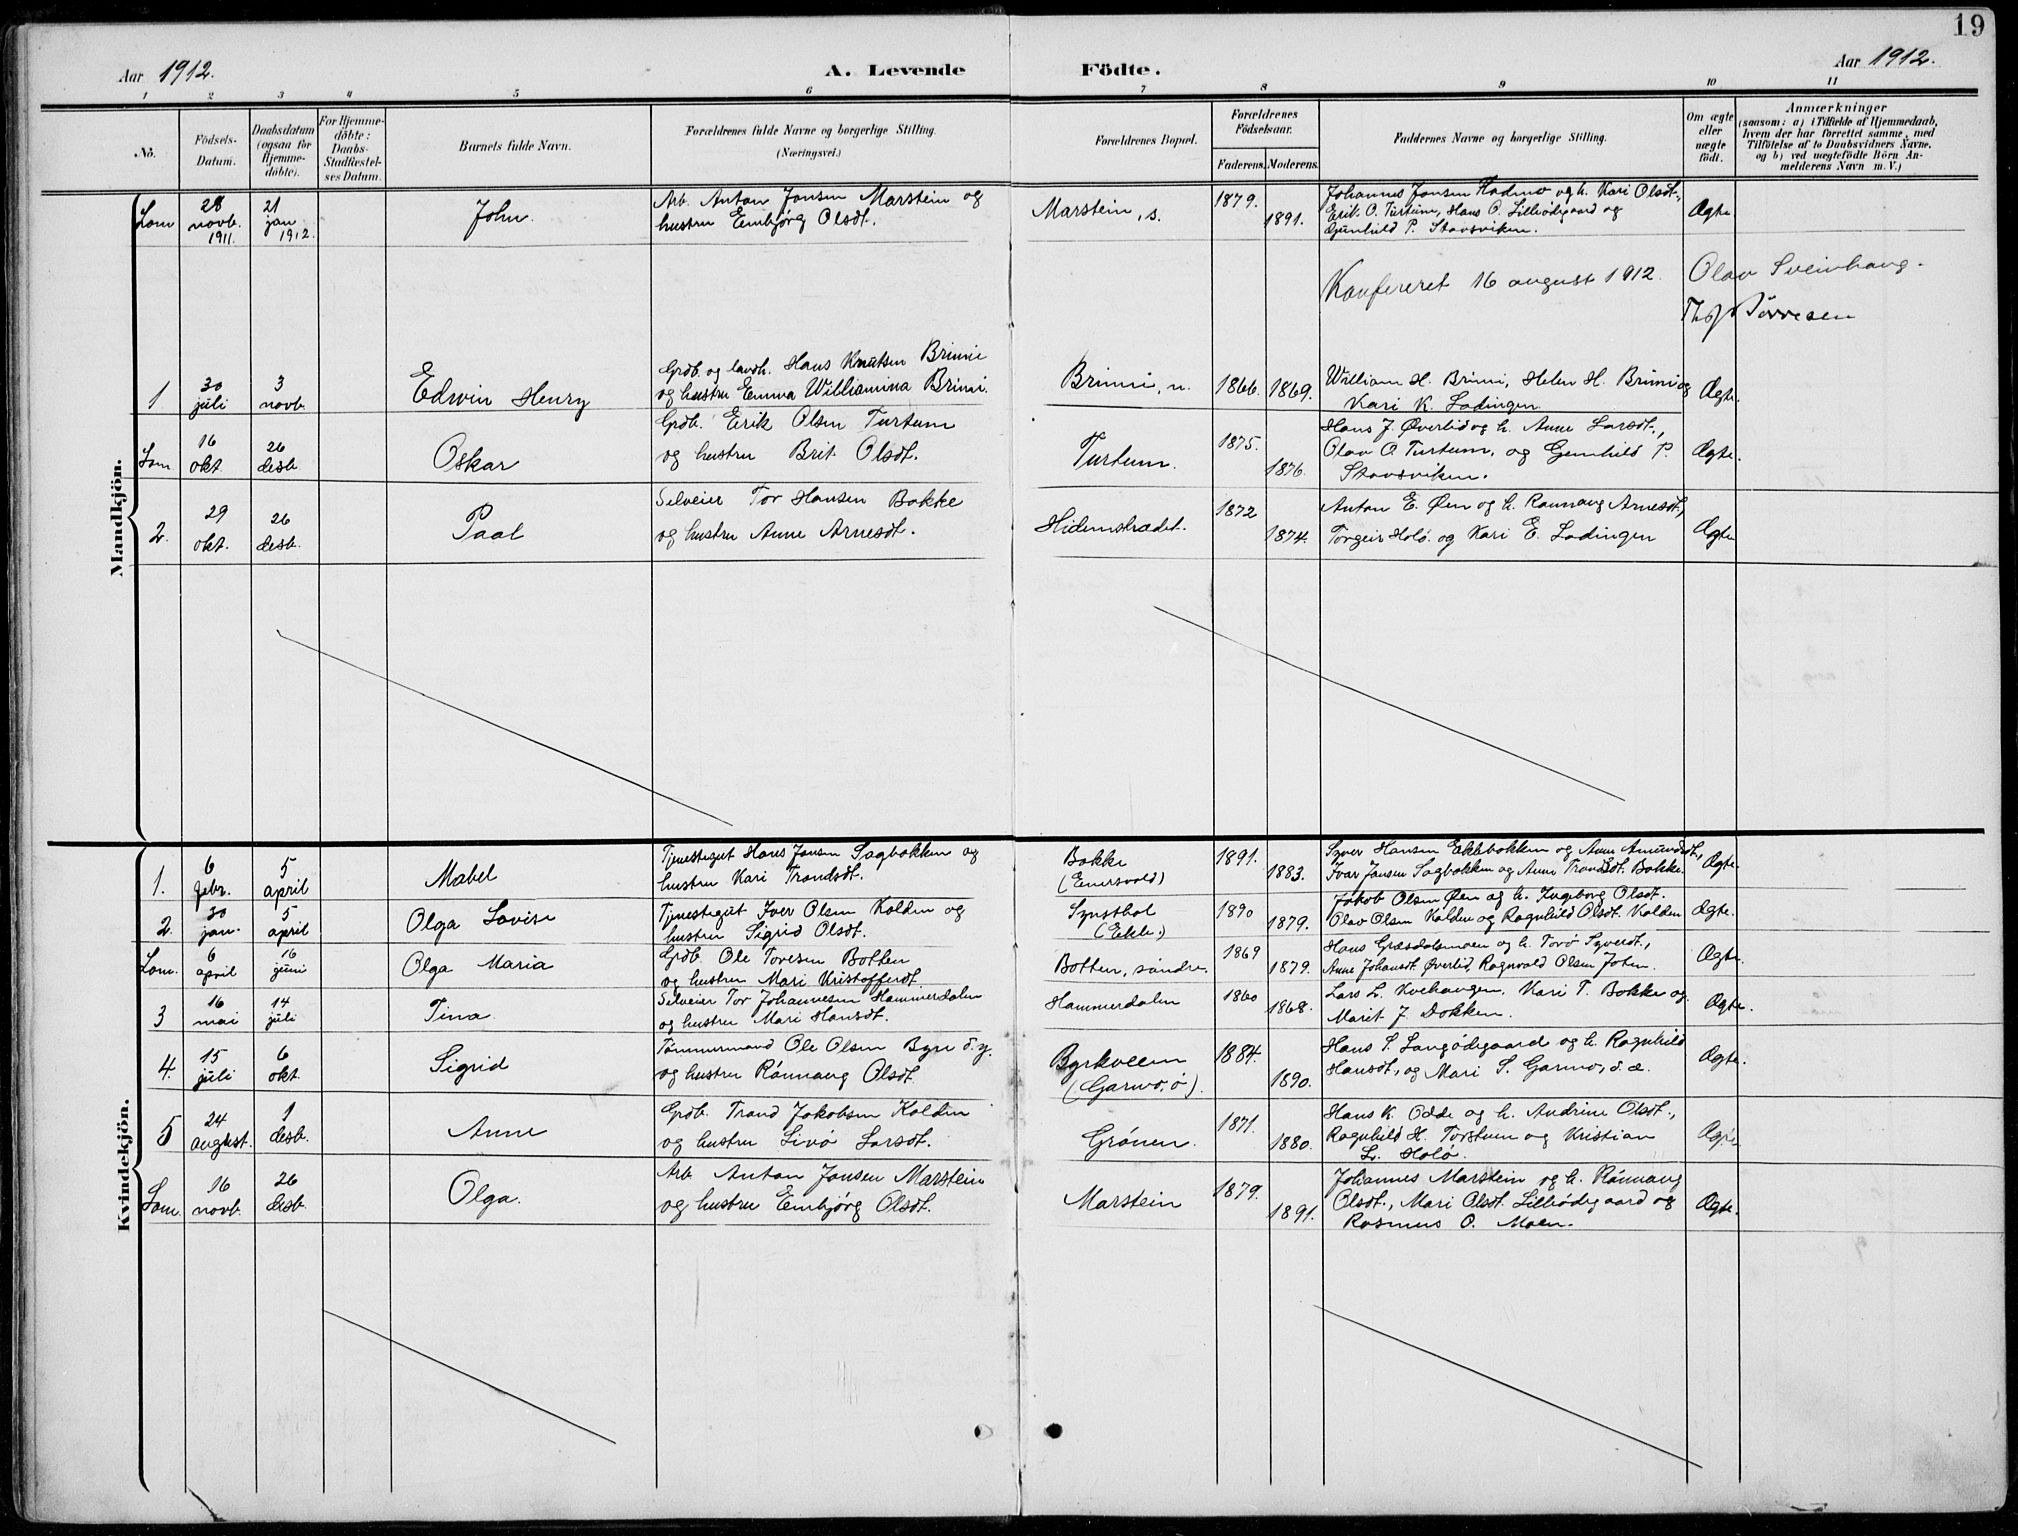 19
Aar 1912.
A. Levende Födte.
Aar 1912.
1 2 3 4 5 6 7 8 9 10 11
No.
Födsels-
Datum.
Daabsdatum
(ogsaa for
Hjemme-
döbte).
For Hjemme-
döbte:
Daabs-
Stadfæstel-
ses Datum.
Barnets fulde Navn.
Forældrenes fulde Navne og borgerlige Stilling.
(Næringsvei.)
Forældrenes Bopæl.
Forældrenes
Födselsaar.
Faderens. Moderens.
Faddernes Navne og borgerlige Stilling.
Om ægte
eller
uægte
födt.
Anmærkninger
(saasom: a) i Tilfælde af Hjemmedaab,
hvem der har forrettet samme, med
Tilföielse af to Daabsvidners Navne,
og b) ved uægtefödte Börn An-
melderens Navn m. V.)
Mandkjön.
Lom
28
novb.
1911.
21
jan
1912.
John.
Arb. Anton Jonsen Marstein og
hustru Embjørg Olsdt.
Marstein, s.
1879.
1891.
Johannes Jonsen og h. Kari Olsdt.,
Erik O. Turtum, Hans O. Lilleødegaard og
Gunhild P. Stavsviken.
Ægte
Konfereret 16 august 1912.
Olav Sveinhaug.
Thof Törresen
1
30
juli
3
novb.
Edwin Henry
Grdb. og landh. Hans Knutsen Brimi
og hustru Emma Williamina Brimi.
Brimi, n.
1866.
1869.
William H. Brimi, Helen H. Brimi og
Kari K. Ladingen
Ægte.
Lom
16
okt.
26
desb.
Oskar
Grdb. Erik Olsen Turtum
og hustru Brit Olsdt.
Turtum.
1875.
1876.
Hans J. Øverlid og h. Anne Larsdt.,
Olav O. Turtum, og Gunhild P.
Stavsviken.
Ægte.
2.
29
okt.
26
desb.
Paal
Selveier Tor Hansen Bakke
og hustru Anne Arnesdt.
Hidemstrædet.
1872
1874.
Anton E. Øen og h. Rannaug Arnesdt,
Torgeir Holö. og Kari E. Ladingen
Ægte
Kvindekjön.
1.
6
febr.
5
april
Mabel
Tjenestegut Hans Jonsen Sagbakken og
hustru Kari Trondsdt.
Bakke
(Einersvold)
1891.
1883.
Syver Hansen Eklebakken og Anne Amundsdt.,
Ivar Jonsen Sagbakken og Anne Trondsdt. Bakke.
Ægte.
2.
30
jan.
5
april
Olga Lovise
Tjenestegut Iver Olsen Kolden og
hustru Sigrid Olsdt.
Synsthol
(Ekle.)
1890
1879.
Jakob Olsen Øen og h. Ingeborg Olsdt.
Olav Olsen Kolden og Ragnhild Olsdt. Kolden
Ægte.
Lom.
6
april
16
juni
Olga Maria
Grdb. Ole Toresen Botten
og hustru Mari Kristofferdt.
Botten, söndre.
1869
1879.
Hans Græsdalsmoen og h. Torø Syverdt.,
Anne Johansdt. Øverlid, Ragnvald Olsen Joten.
Ægte.
3
16
mai
14
juli
Tina
Selveier Tor Johannesen Hammerdalen
og hustru Mari Hansdt.
Hammerdalen
1860
1868.
Lars L. Kvehaugen, Kari T. Bakke og
Marit J. Dokken.
Ægte.
4.
15
juli
6
okt.
Sigrid
Tömmermand Ole Olsen Byre d.y.
og hustru Rönnaug Olsdt.
Byrkveem
(Garmo, ö).
1884.
1890.
Hans S. Langödegaard og h. Ragnhild
Hansdt, og Mari S. Garmo, d. æ.
Ægte.
5
24
august.
1
desb.
Anne
Grdb. Trond Jakobsen Kolden
og hustru Livö Larsdt.
Grönen.
1871.
1880.
Hans K. Odde og h. Andrine Olsdt.,
Ragnhild H. Torstum og Kristian
L. Holö.
Ægte
Lom.
16
novb.
26
desb.
Olga.
Arb. Anton Jonsen Marstein
og hustru Embjørg Olsdt.
Marstein
1879.
1891.
Johannes Marstein og h. Rönnaug
Olsdt., Mari Olsdt. Lilleødegaard og
Rasmus O. Moen.
Ægte.